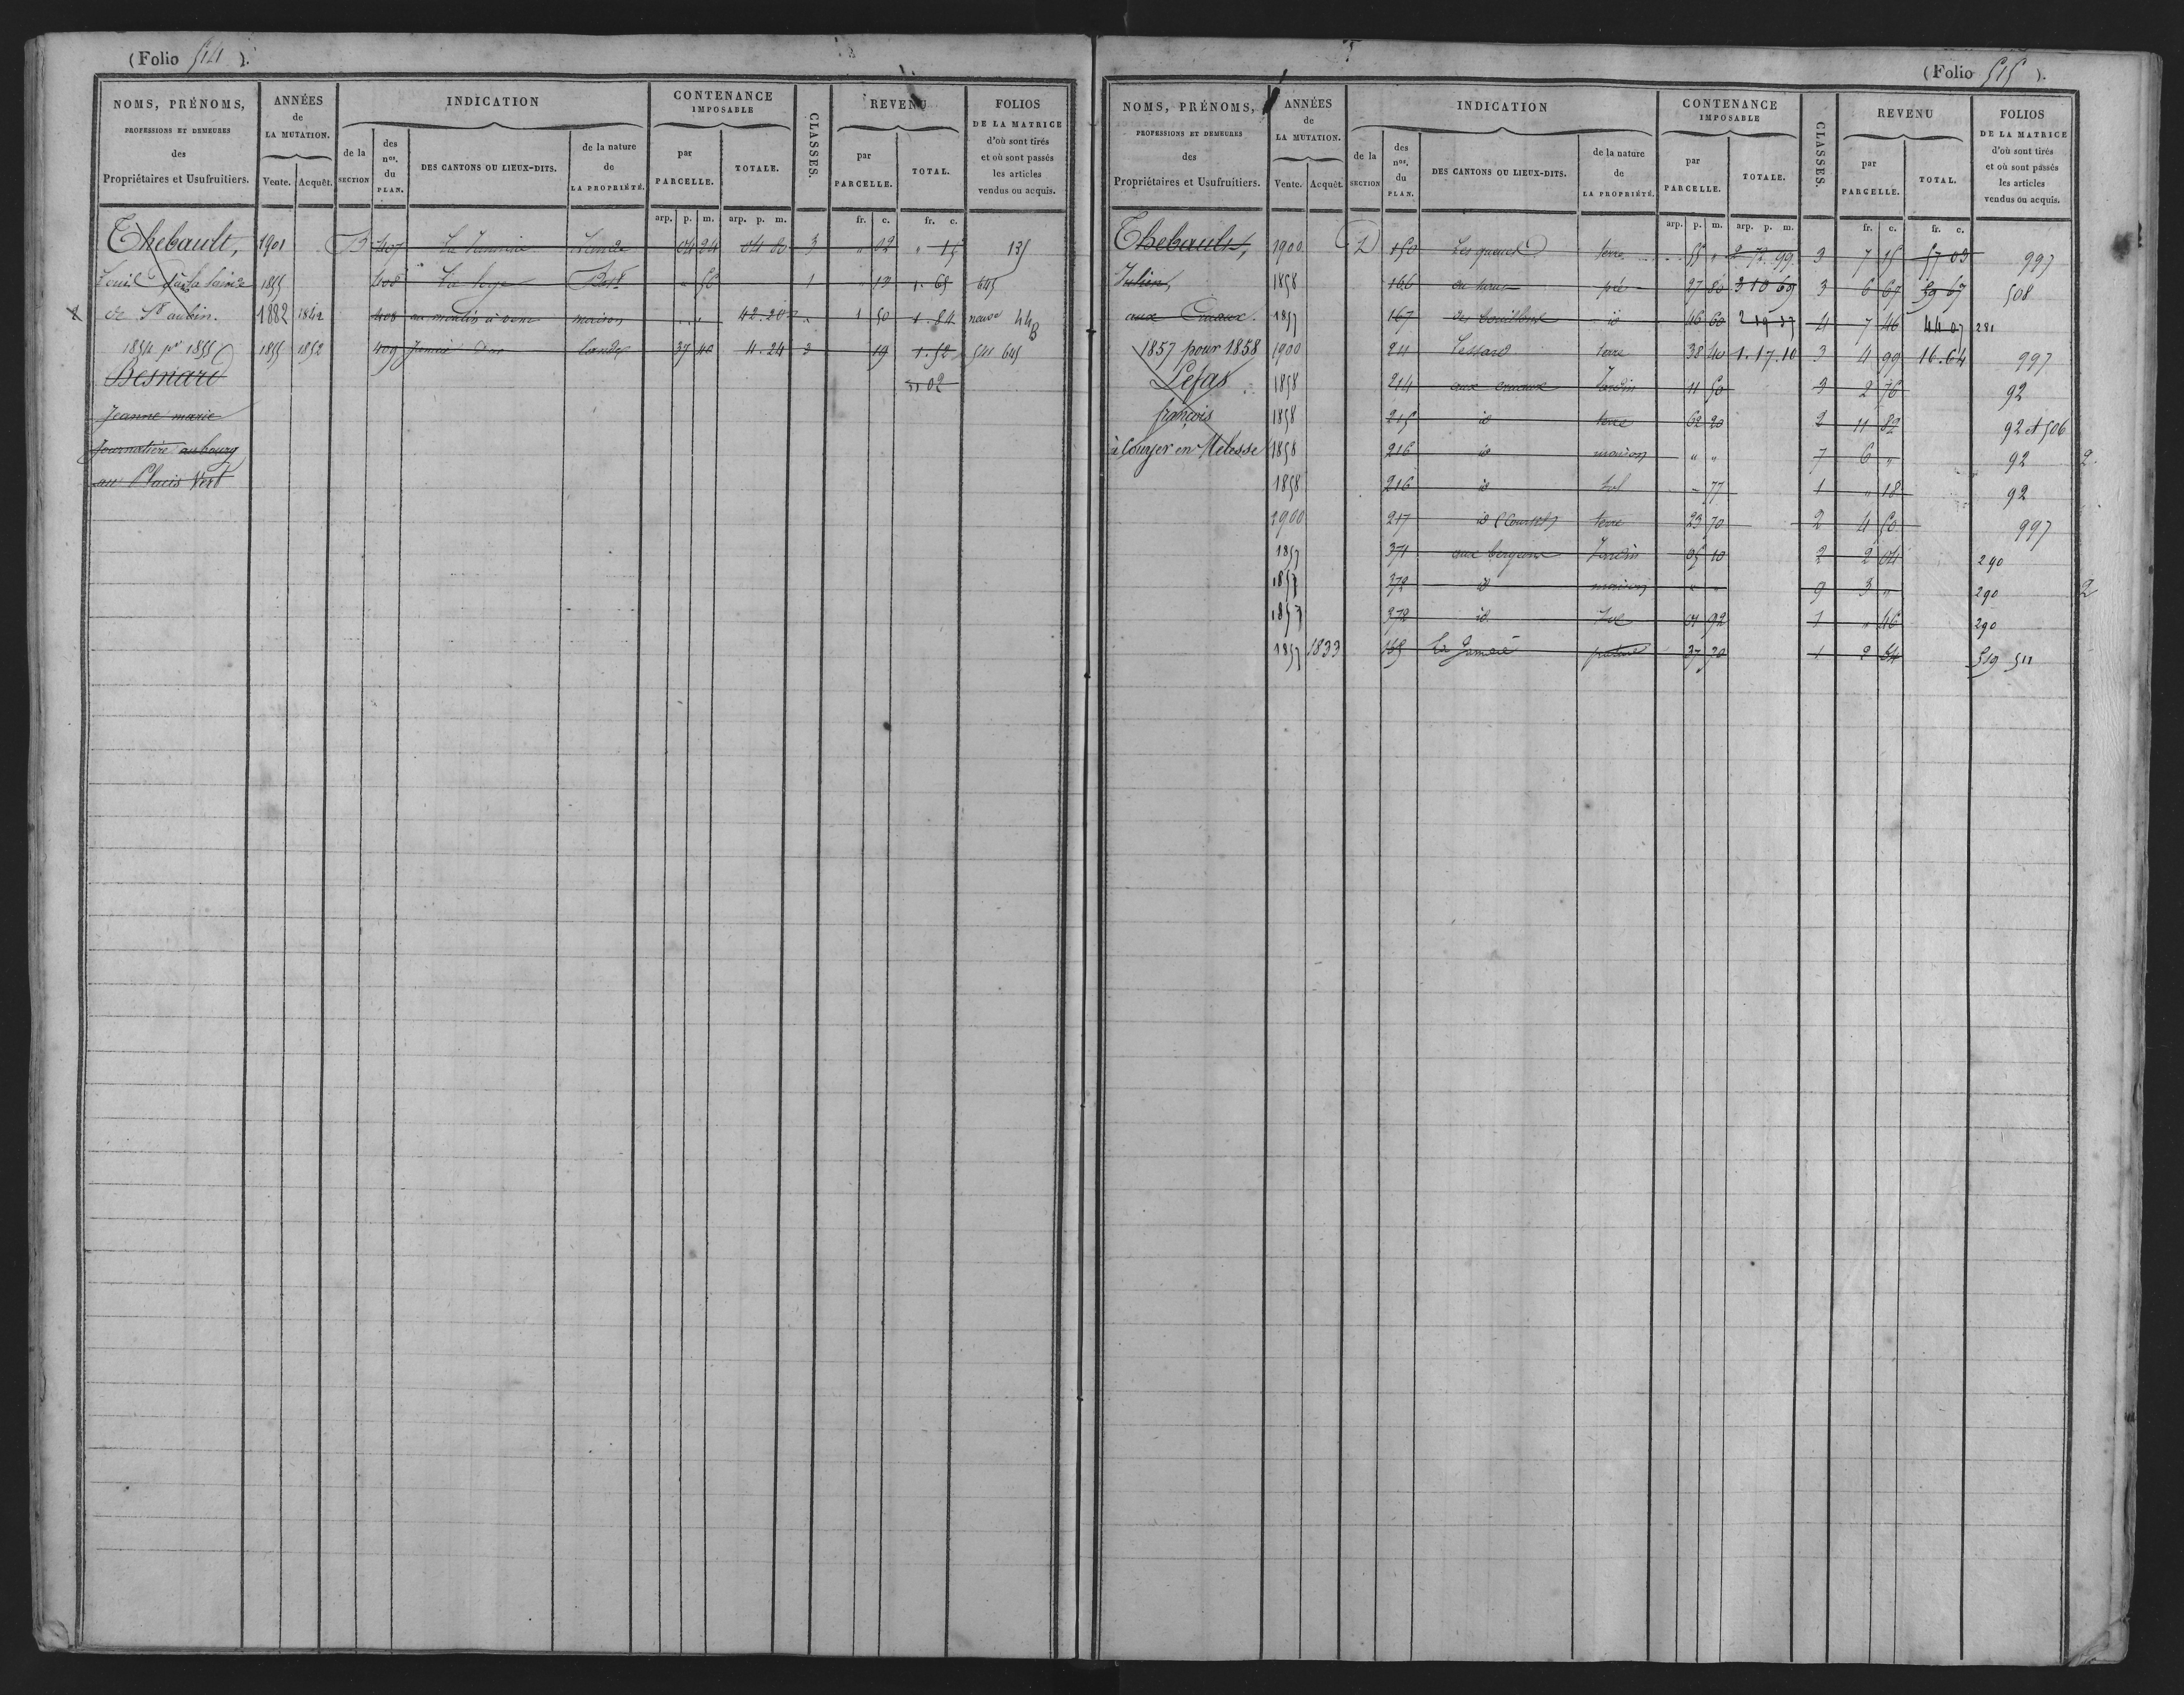 (Folio 514 ).
NOMS, PRÉNOMS, PROFESSIONS ET DEMEURES des Propriétaires et Usufruitiers.
ANNÉES de LA MUTATION. Vente. Acquêt.
INDICATION
de la SECTION
des nos. du PLAN.
DES CANTONS OU LIEUX-DITS.
de la nature de LA PROPRIÉTÉ.
CONTENANCE IMPOSABLE
par PARCELLE.
TOTALE.
CLASSES.
REVENU
par PARCELLE.
TOTAL.
FOLIOS DE LA MATRICE d'où sont tirés et où sont passés les articles vendus ou acquis.
arp. p. m. arp. p. m. fr. c. fr. c.
Thebault, 1901 407 La 04 24 04 80 3 " 02 " 15 135
Louis 1855 408 La loge " 56 1 " 13 1.65 645
de St aubin. 1882 1842 408 au moulin à vent maison " " 42.20 " 1 50 1.84 448
1854 pr 1855 1855 1852 409 lande 37 40 4.24 3 19 1.52 511 645
Besnard 02
Jeanne marie
Journalière au bourg
au Placis Vert
(Folio 515 ).
NOMS, PRÉNOMS, PROFESSIONS ET DEMEURES des Propriétaires et Usufruitiers.
ANNÉES de LA MUTATION. Vente. Acquêt.
INDICATION
de la SECTION
des nos. du PLAN.
DES CANTONS OU LIEUX-DITS.
de la nature de LA PROPRIÉTÉ.
CONTENANCE IMPOSABLE
par PARCELLE.
TOTALE.
CLASSES.
REVENU
par PARCELLE.
TOTAL.
FOLIOS DE LA MATRICE d'où sont tirés et où sont passés les articles vendus ou acquis.
arp. p. m. arp. p. m. fr. c. fr. c.
Thebault, 1900 D 150 Les terre 55 " 2 72 99 3 7 15 57 03 997
Julien, 1858 166 pré 27 80 3 10 69 3 6 67 59 67 508
aux 1857 167 id 46 60 2 19 37 4 7 46 44 07 281
1857 pour 1858 1900 211 Lessard terre 38 40 1.17.10 3 4 99 16.64 997
Lefas 1858 214 aux Jardin 11 50 3 2 76 92
françois 1858 215 id terre 62 20 2 11 82 92 et 506
à Courger en Melesse 1858 216 id maison " " 7 6 " 92 2.
1858 216 id sol - 77 1 " 18 92
1900 217 id terre 23 70 2 4 50 997
1857 371 Jardin 05 10 2 2 04 290
1857 372 id maison " " 9 3 " 290 2
1857 372 id sol 01 92 1 " 46 290
1857 1833 165 pature 37 30 1 2 54 519 511